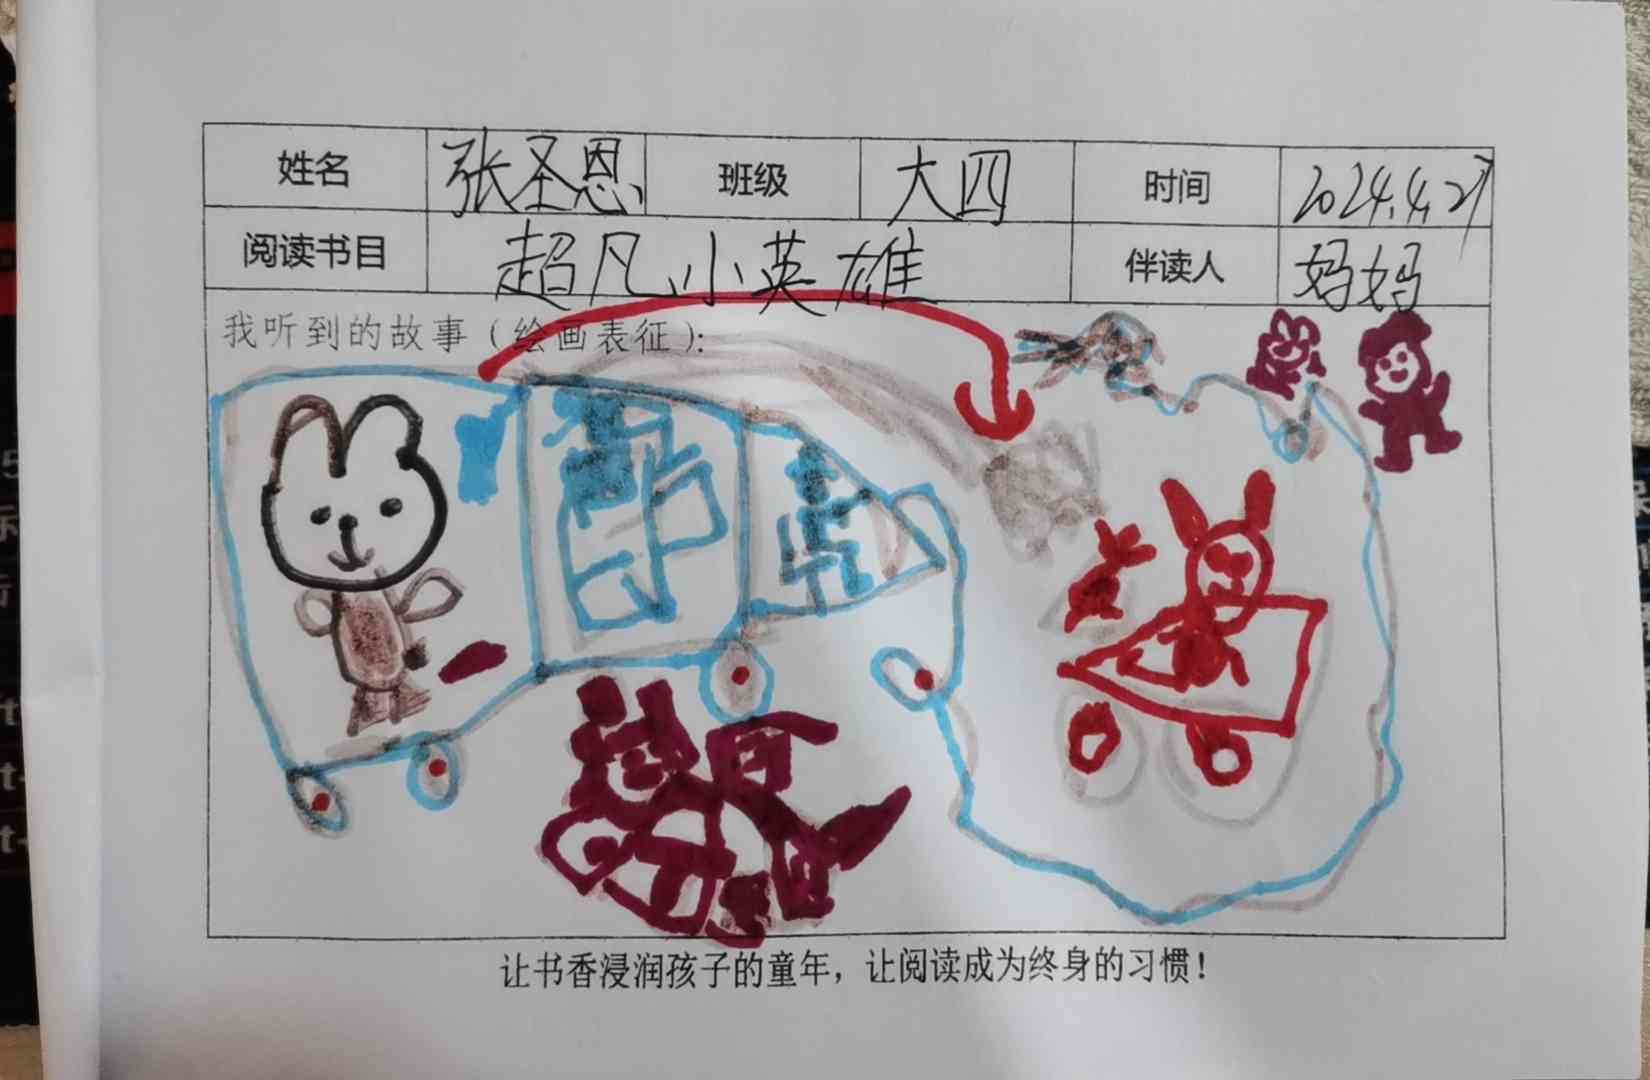 姓名 张圣恩 班级 大四 时间 2024.4.27
阅读书目 超凡小英雄 伴读人 妈妈
我听到的故事（绘画表征）：
让书香浸润孩子的童年，让阅读成为终身的习惯！